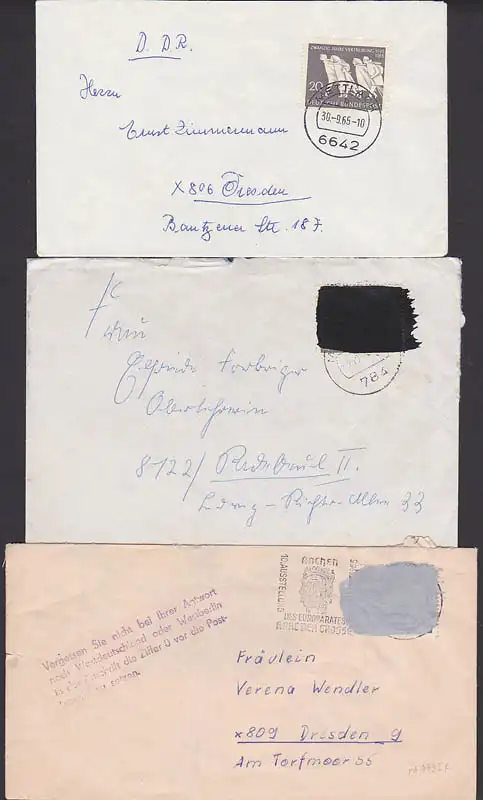 D. D. R.
ZWANZIG JAHRE VERTREIBUNG 1945
1965
20
DEUTSCHE BUNDESPOST
30.-9.65-10
6642
Herrn
Ernst Zimmermann
X 806 Dresden
Bautzener Str. 187.
784
8122/ Radebeul II.
Ludwig-Richter-Allee 33
AACHEN
10. AUSSTELLUNG
DES EUROPARATES
KARL DER GROSSE
Vergessen Sie nicht bei Ihrer Antwort
nach Westdeutschland oder Westberlin
in der Anschrift die Ziffer 0 vor die Post-
zu setzen.
Fräulein
Verena Wendler
x809 Dresden 9
Am Torfmoor 55